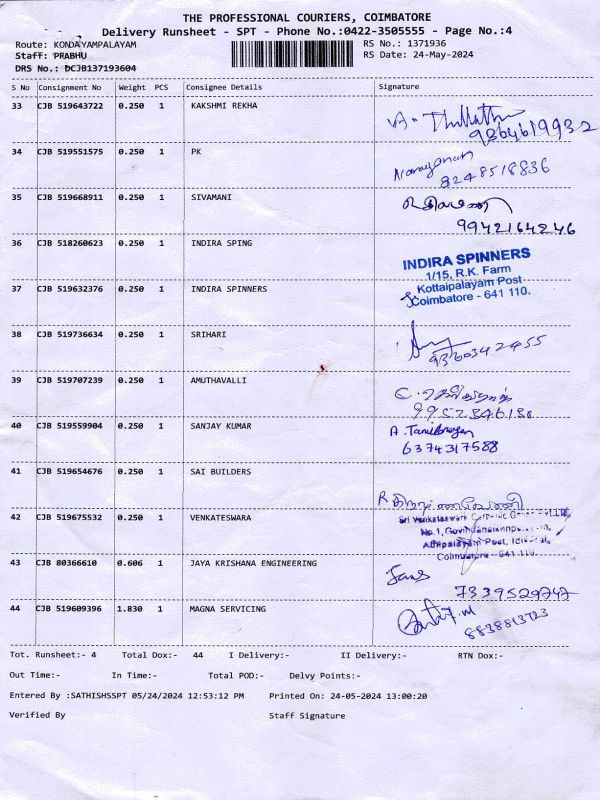 THE PROFESSIONAL COURIERS, COIMBATORE
Delivery Runsheet - SPT - Phone No.:0422-3505555 - Page No.:4
Route: KONDAYAMPALAYAM RS No.: 1371936
Staff: PRABHU RS Date: 24-May-2024
DRS No.: DCJB137193604
S No Consignment No Weight PCS Consignee Details Signature
33 CJB 519643722 0.250 1 KAKSHMI REKHA
9364619932
34 CJB 519551575 0.250 1 PK Narayanan
8248518836
35 CJB 519668911 0.250 1 SIVAMANI
9942164246
36 CJB 518260623 0.250 1 INDIRA SPING
INDIRA SPINNERS
1/15, R.K. Farm
37 CJB 519632376 0.250 1 INDIRA SPINNERS Kottaipalayam Post
Coimbatore - 641 110.
38 CJB 519736634 0.250 1 SRIHARI
9360342455
39 CJB 519707239 0.250 1 AMUTHAVALLI
40 CJB 519559904 0.250 1 SANJAY KUMAR A.
6374317588
41 CJB 519654676 0.250 1 SAI BUILDERS
42 CJB 519675532 0.250 1 VENKATESWARA
Sri Venkateswara
No.1,
Athipalayam Post,
Coimbatore - 641 110.
43 CJB 80366610 0.606 1 JAYA KRISHANA ENGINEERING
7339529747
44 CJB 519609396 1.830 1 MAGNA SERVICING
8838813723
Tot. Runsheet:- 4 Total Dox:- 44 I Delivery:- II Delivery:- RTN Dox:-
Out Time:- In Time:- Total POD:- Delvy Points:-
Entered By :SATHISHSSPT 05/24/2024 12:53:12 PM Printed On: 24-05-2024 13:00:20
Verified By Staff Signature